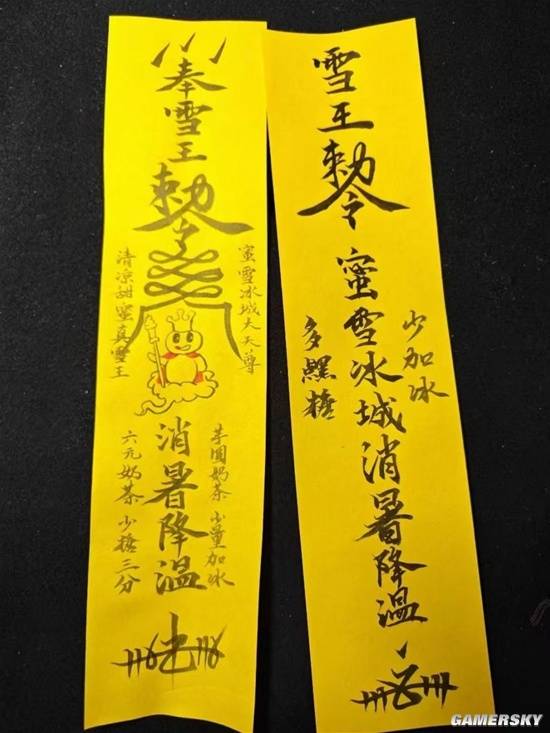 奉雪王
勅令
蜜雪冰城大天尊
清凉甜蜜真雪王
消暑降温
芋圓奶茶 少量加冰
六元奶茶 少糖三分
雪王
勅令
蜜雪冰城消暑降温
少加冰
多黑糖
GAMERSKY